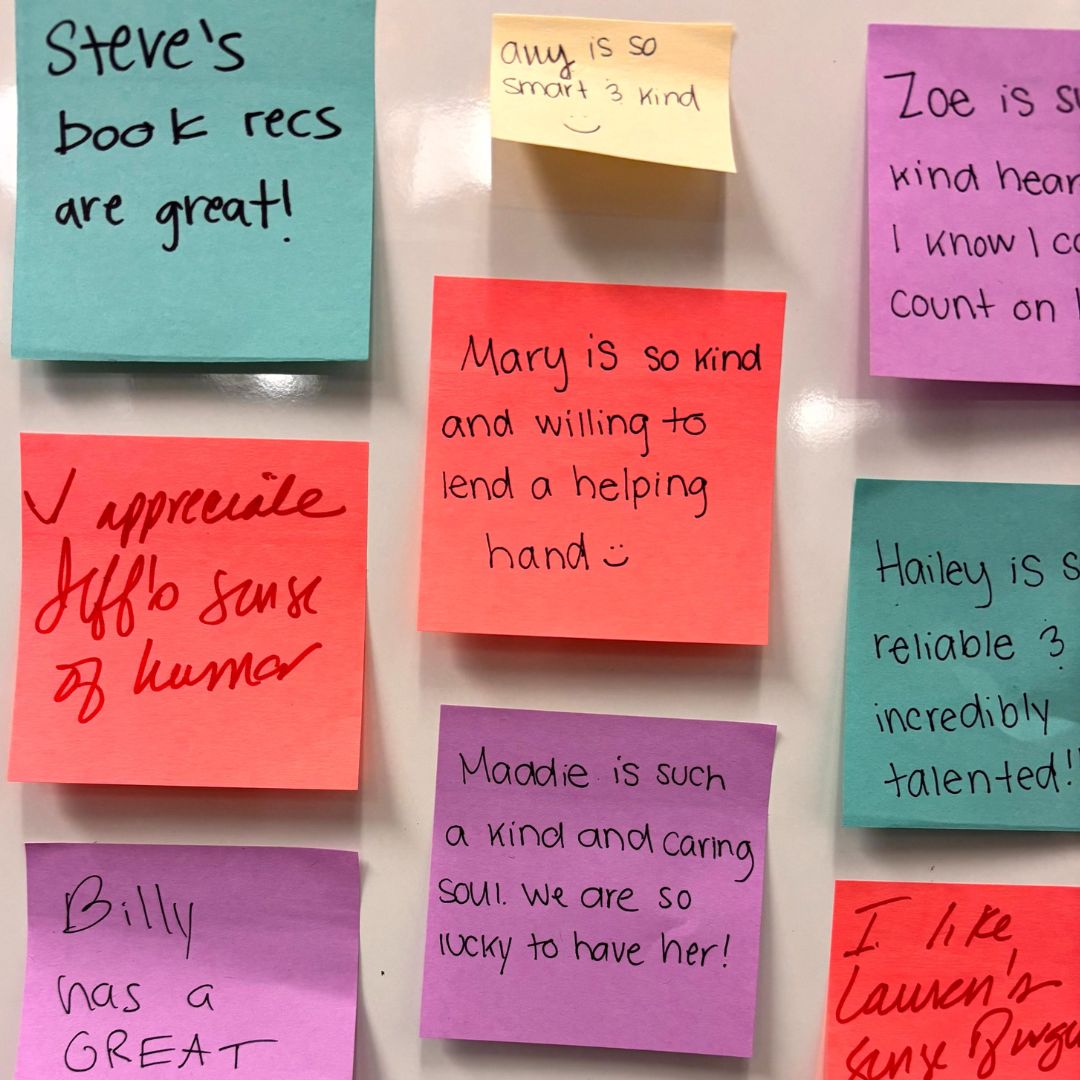 Steve's
book recs
are great!
any is so
smart & kind
Zoe is su
kind hear
I know I ca
count on
I appreciate
Jeff's sense
of humor
Mary is so kind
and willing to
lend a helping
hand
Hailey is s
reliable &
incredibly
talented!!
Billy
has a
GREAT
Maddie is such
a kind and caring
soul. We are so
lucky to have her!
I like
Lauren's
sense